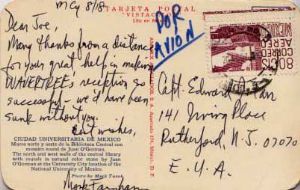 MCy 8/18
TARJETA POSTAL
Dear Joe,
Many thanks from a distance
for your great help in making
WAVERTREE's reception so
successful - we'd have been
sunk without you.
Best wishes,
Mark
POR
AVION
80 CTS
CORREO
AEREO
MEXICO
Capt. Edward
141 Irving Place
Rutherford N.J. 07070
E.U.A.
CIUDAD UNIVERSITARIA DE MEXICO
Muros norte y oeste de la Biblioteca Central con
mosaico mural de Juan O'Gorman
The north and west walls of the central library
with murals in natural color stone by Juan
O'Gorman at the University City location of the
National University of Mexico.
Photo by Mark Turok